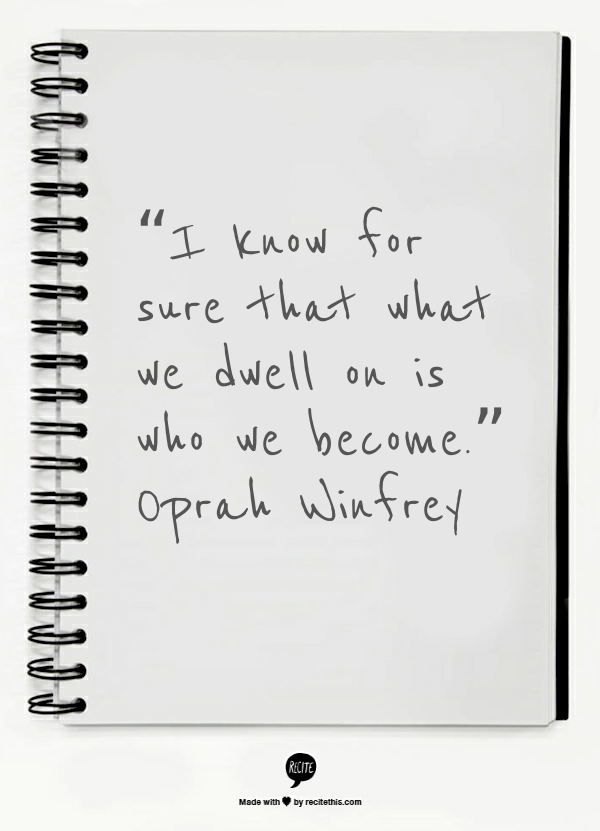 “I know for
sure that what
we dwell on is
who we become.”
Oprah Winfrey
RECITE
Made with ♥ by recitethis.com